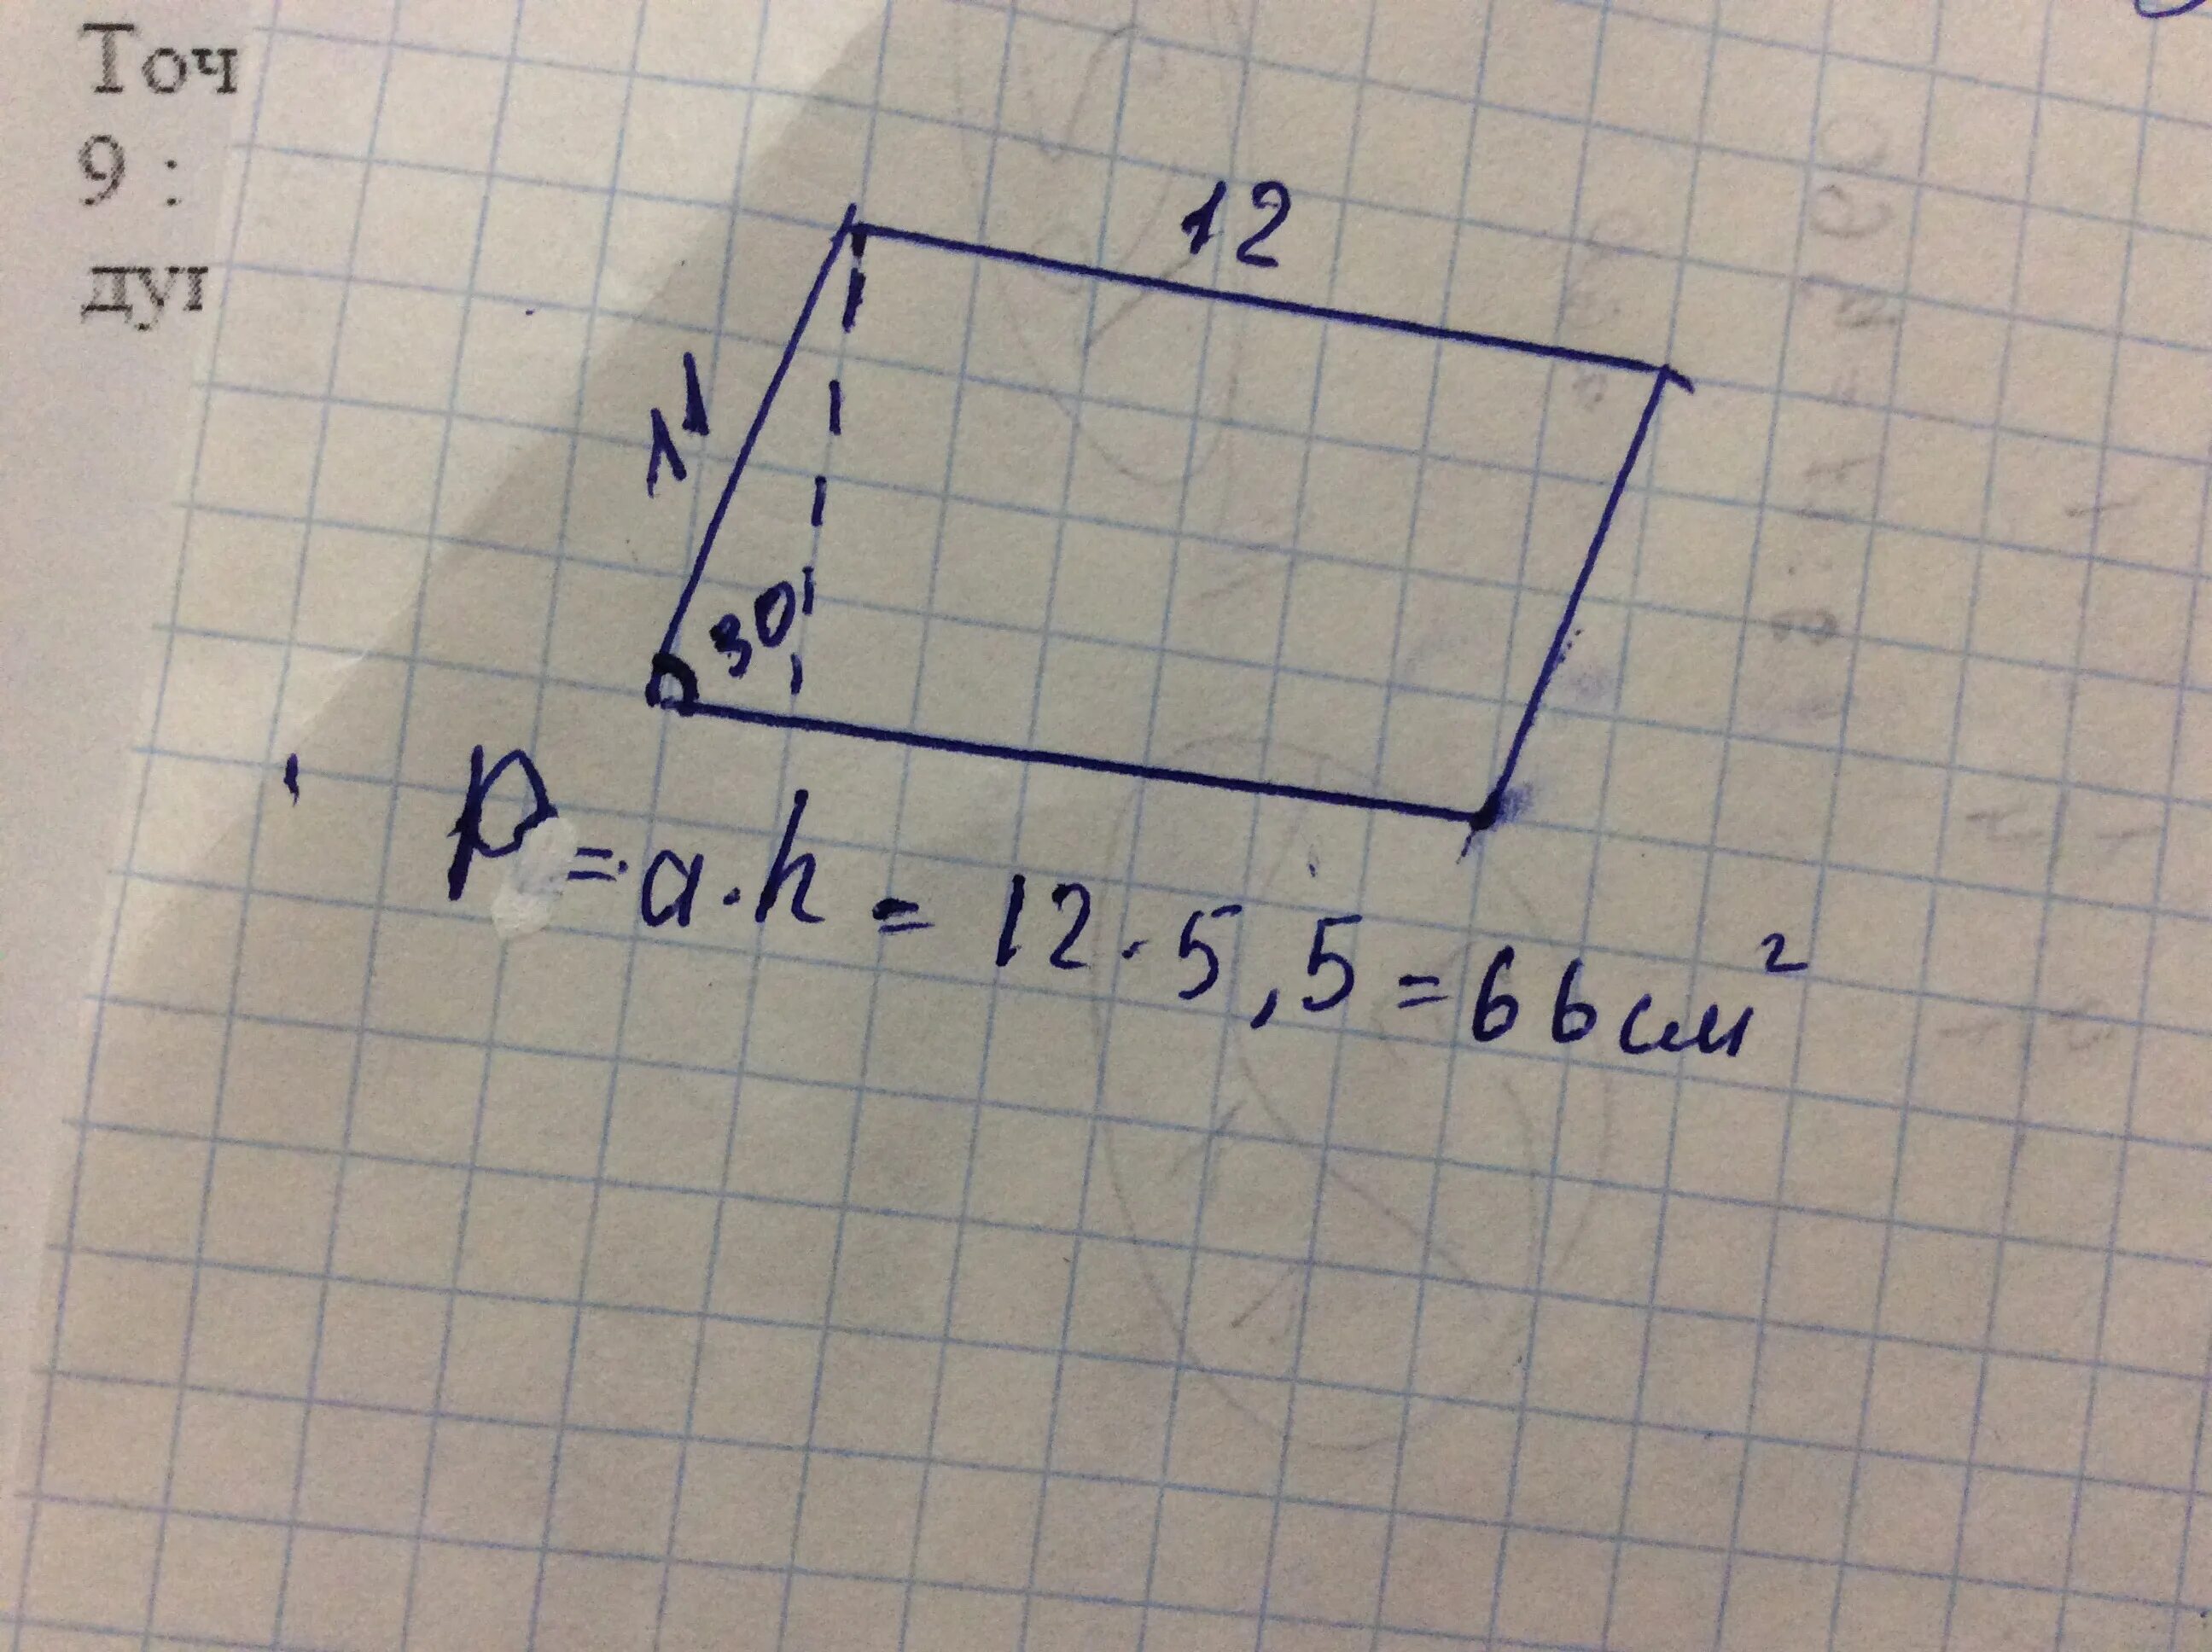 Точ
9 :
12
11
30
P = a · h = 12 · 5,5 = 66 см²